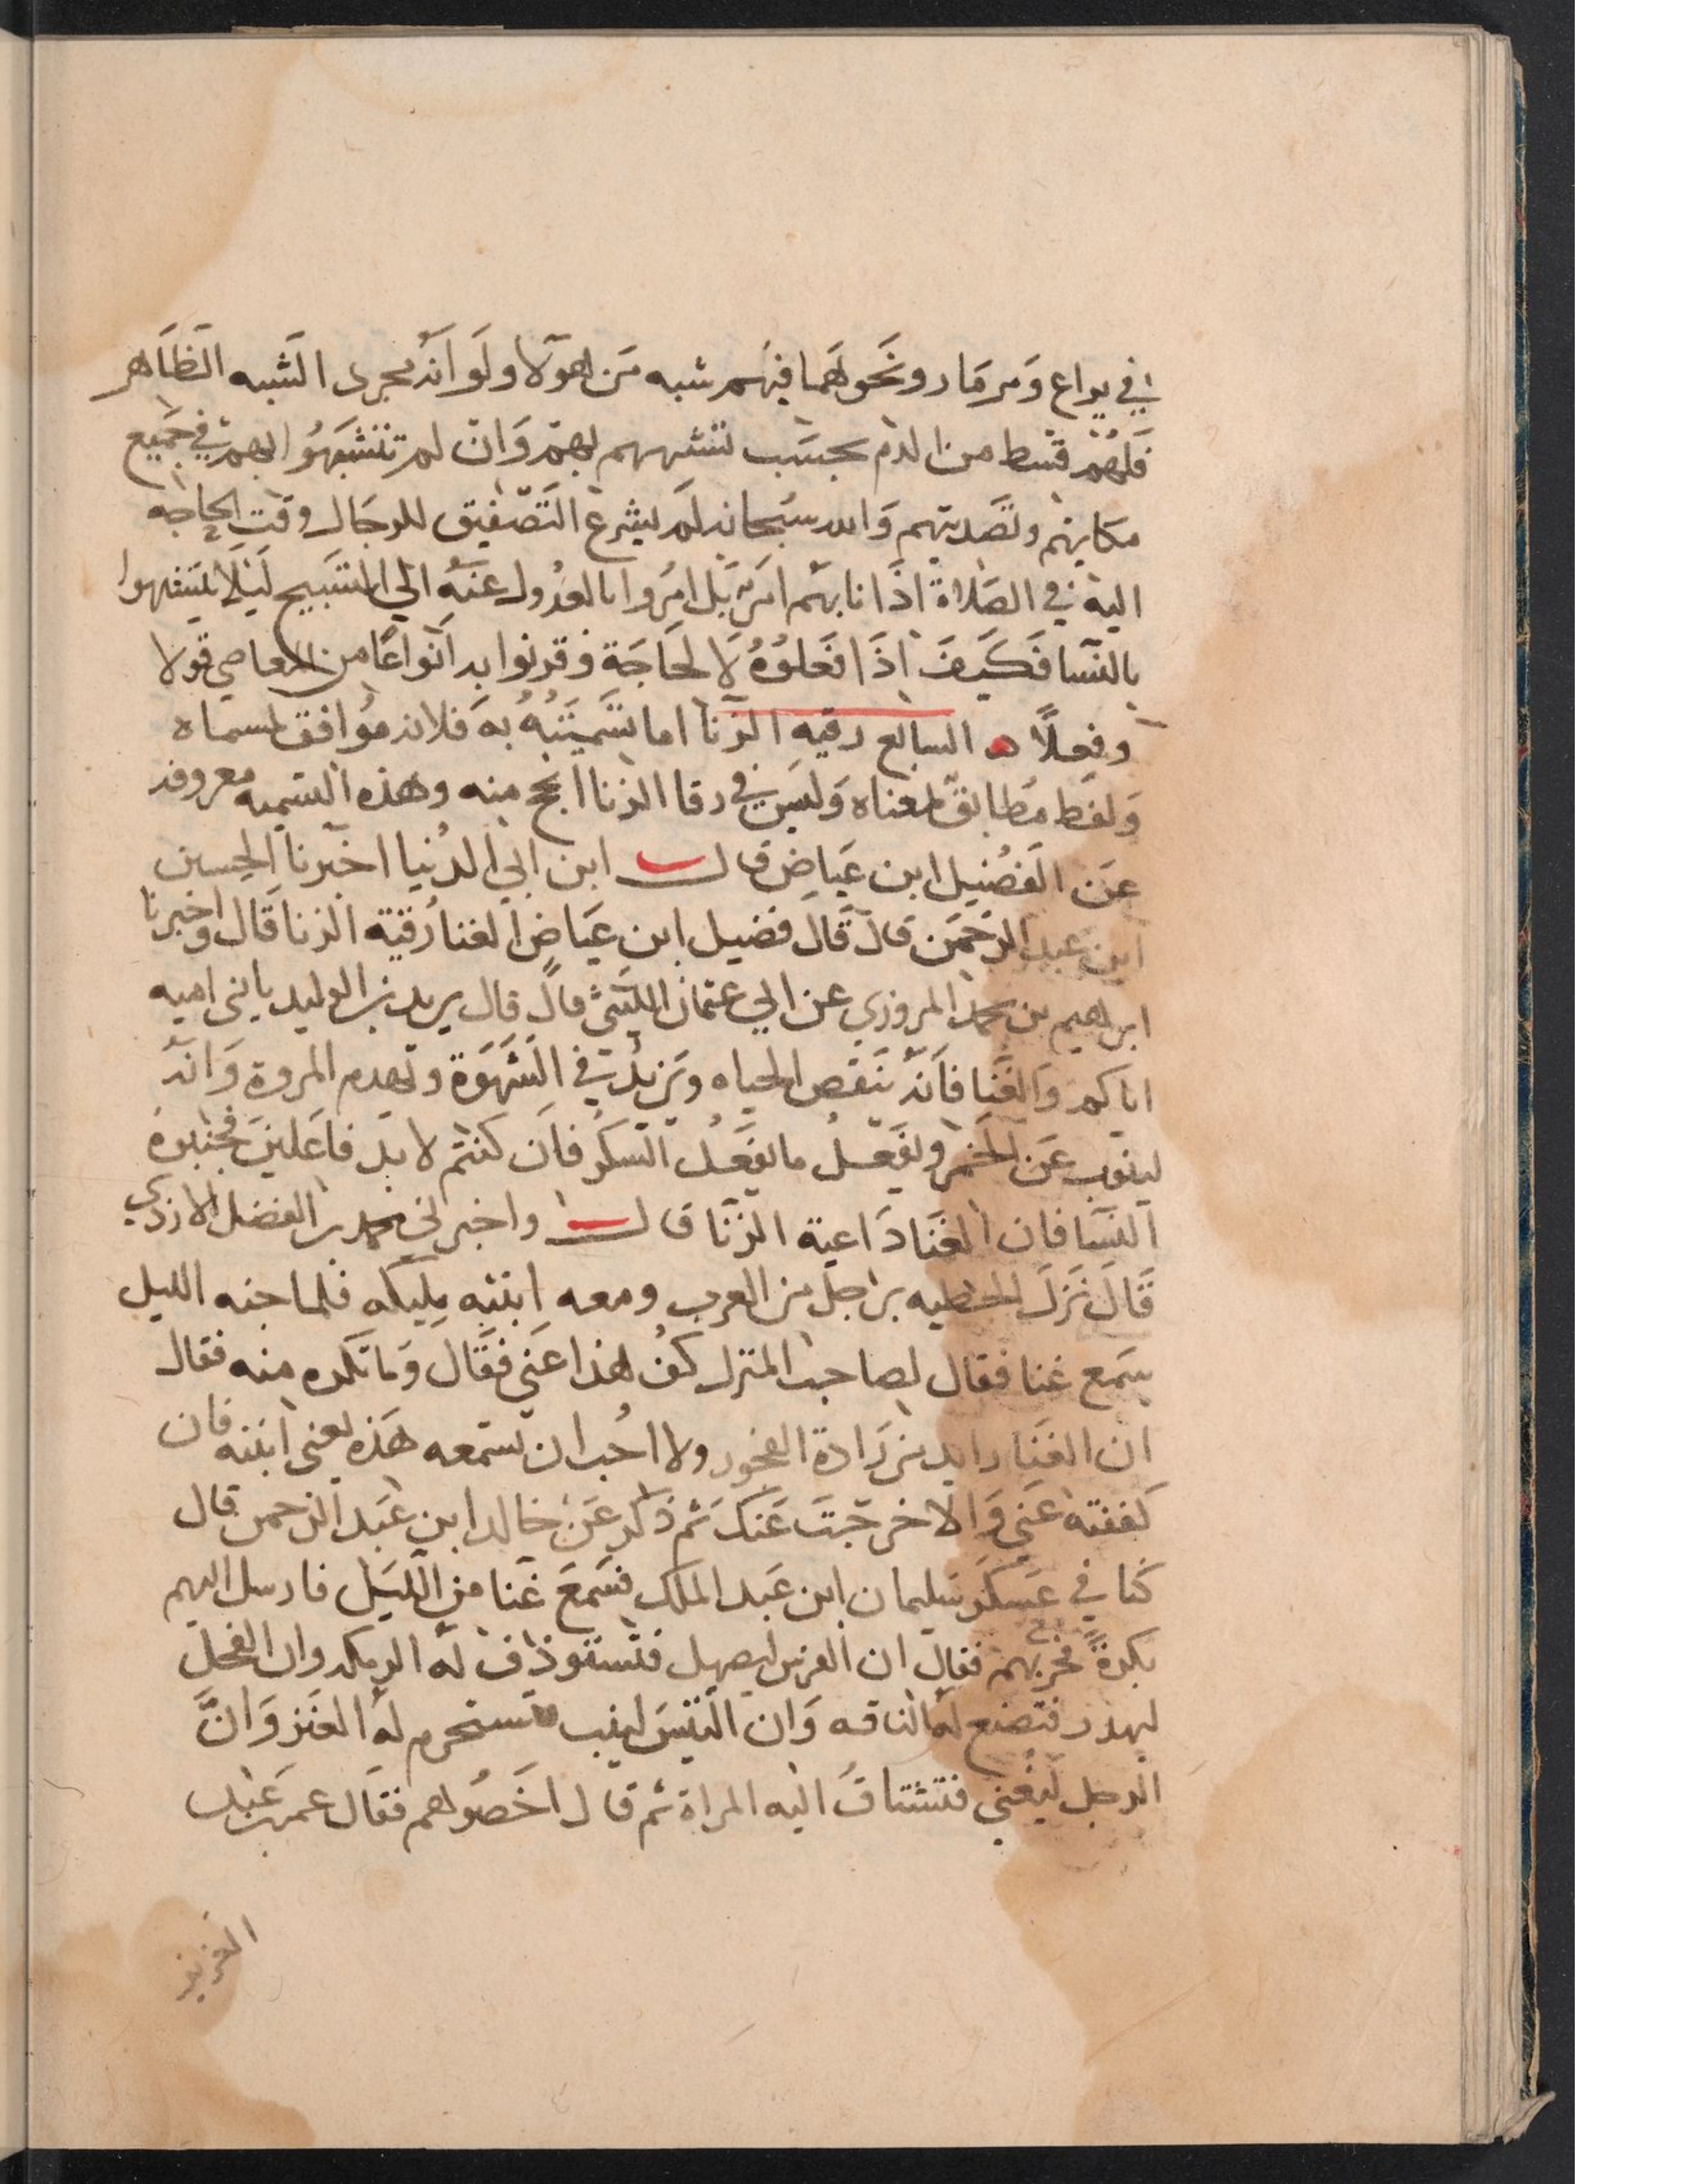 في يراع ومزمار ونحوهما فيهم شبه من هولا ولو انه مجرد الشبه الظاهر
فلهم قسط من الذم بحسب تشبههم بهم وان لم تتشبهوا بهم في جميع
مكايهم وتصديتهم والله سبحانه لم يشرع التصفيق للرجال وقت الحاجه
اليه في الصلاة اذا نابهم امر بل امروا بالعدول عنه الي التسبيح ليلا يتشبهوا
بالنسا فكيف اذا فعلوه لا لحاجة وقرنوا به انواعا من المعاصي قولا
وفعلا ه السابع رقيه الزنا اما تسميته به فلانه موافق لمسماه
ولفظ مطابق لمعناه وليس في رقا الزنا انجح منه وهذه التسميه معروفه
عن الفضيل ابن عياض قال ابن ابي الدنيا اخبرنا الحسين
ابن عبد الرحمن قال قال فضيل ابن عياض الغنا رقية الزنا قال واخبرنا
ابراهيم بن محمد المروزي عن ابي عثمان الليثي قال قال يزيد بن الوليد يا بني اميه
اياكم والغنا فانه ينقص الحياه ويزيد في الشهوة ويهدم المروة وانه
لينوب عن الخمر ويفعل ما يفعل السكر فان كنتم لا بد فاعلين فجنبوه
النسا فان الغنا داعية الزنا قال واخبرني محمد بن الفضل الازدي
قال نزل الحطيه برجل من العرب ومعه ابنته مليكه فلما جنه الليل
سمع غنا فقال لصاحب المنزل كف هذا عني فقال وما تكره منه فقال
ان الغنا رايد من رادة الفجور ولا احب ان تستمعه هذه يعني ابنته فان
كففته عني والا خرجت عنك ثم ذكر عن خالد ابن عبد الرحمن قال
كنا في عسكر سليمان ابن عبد الملك فسمع غنا من الليل فارسل اليهم
بكرة فجي بهم فقال ان الفرس ليصهل فتستوذف له الرمكه وان الفحل
ليهدر فتضبع له الناقه وان التيس لينب فتستحرم له العنز وان
الرجل ليغني فتشتاق اليه المراة ثم قال اخصوهم فقال عمر بن عبد
العزيز